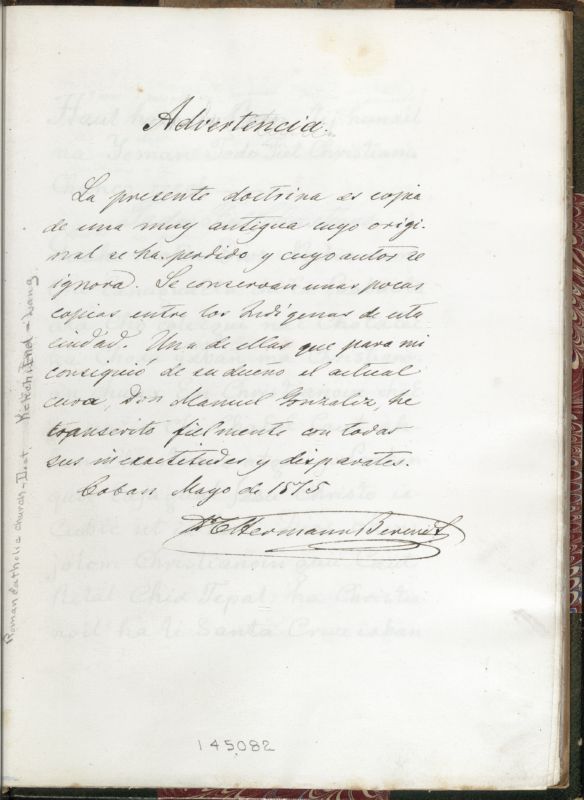 Advertencia.
La presente doctrina es copia
de una muy antigua cuyo origi-
nal se ha perdido y cuyo autor se
ignora. Se conservan unas pocas
copias entre los Indígenas de esta
ciudad. Una de ellas que para mi
consiguió de su dueño el actual
cura, Don Manuel Gonzalez, he
transcrito fielmente con todas
sus inexactitudes y disparates.
Coban Mayo de 1875
Dr C Hermann Berendt
Roman Catholic church - Doct. Kekchi Ind - Lang.
145082